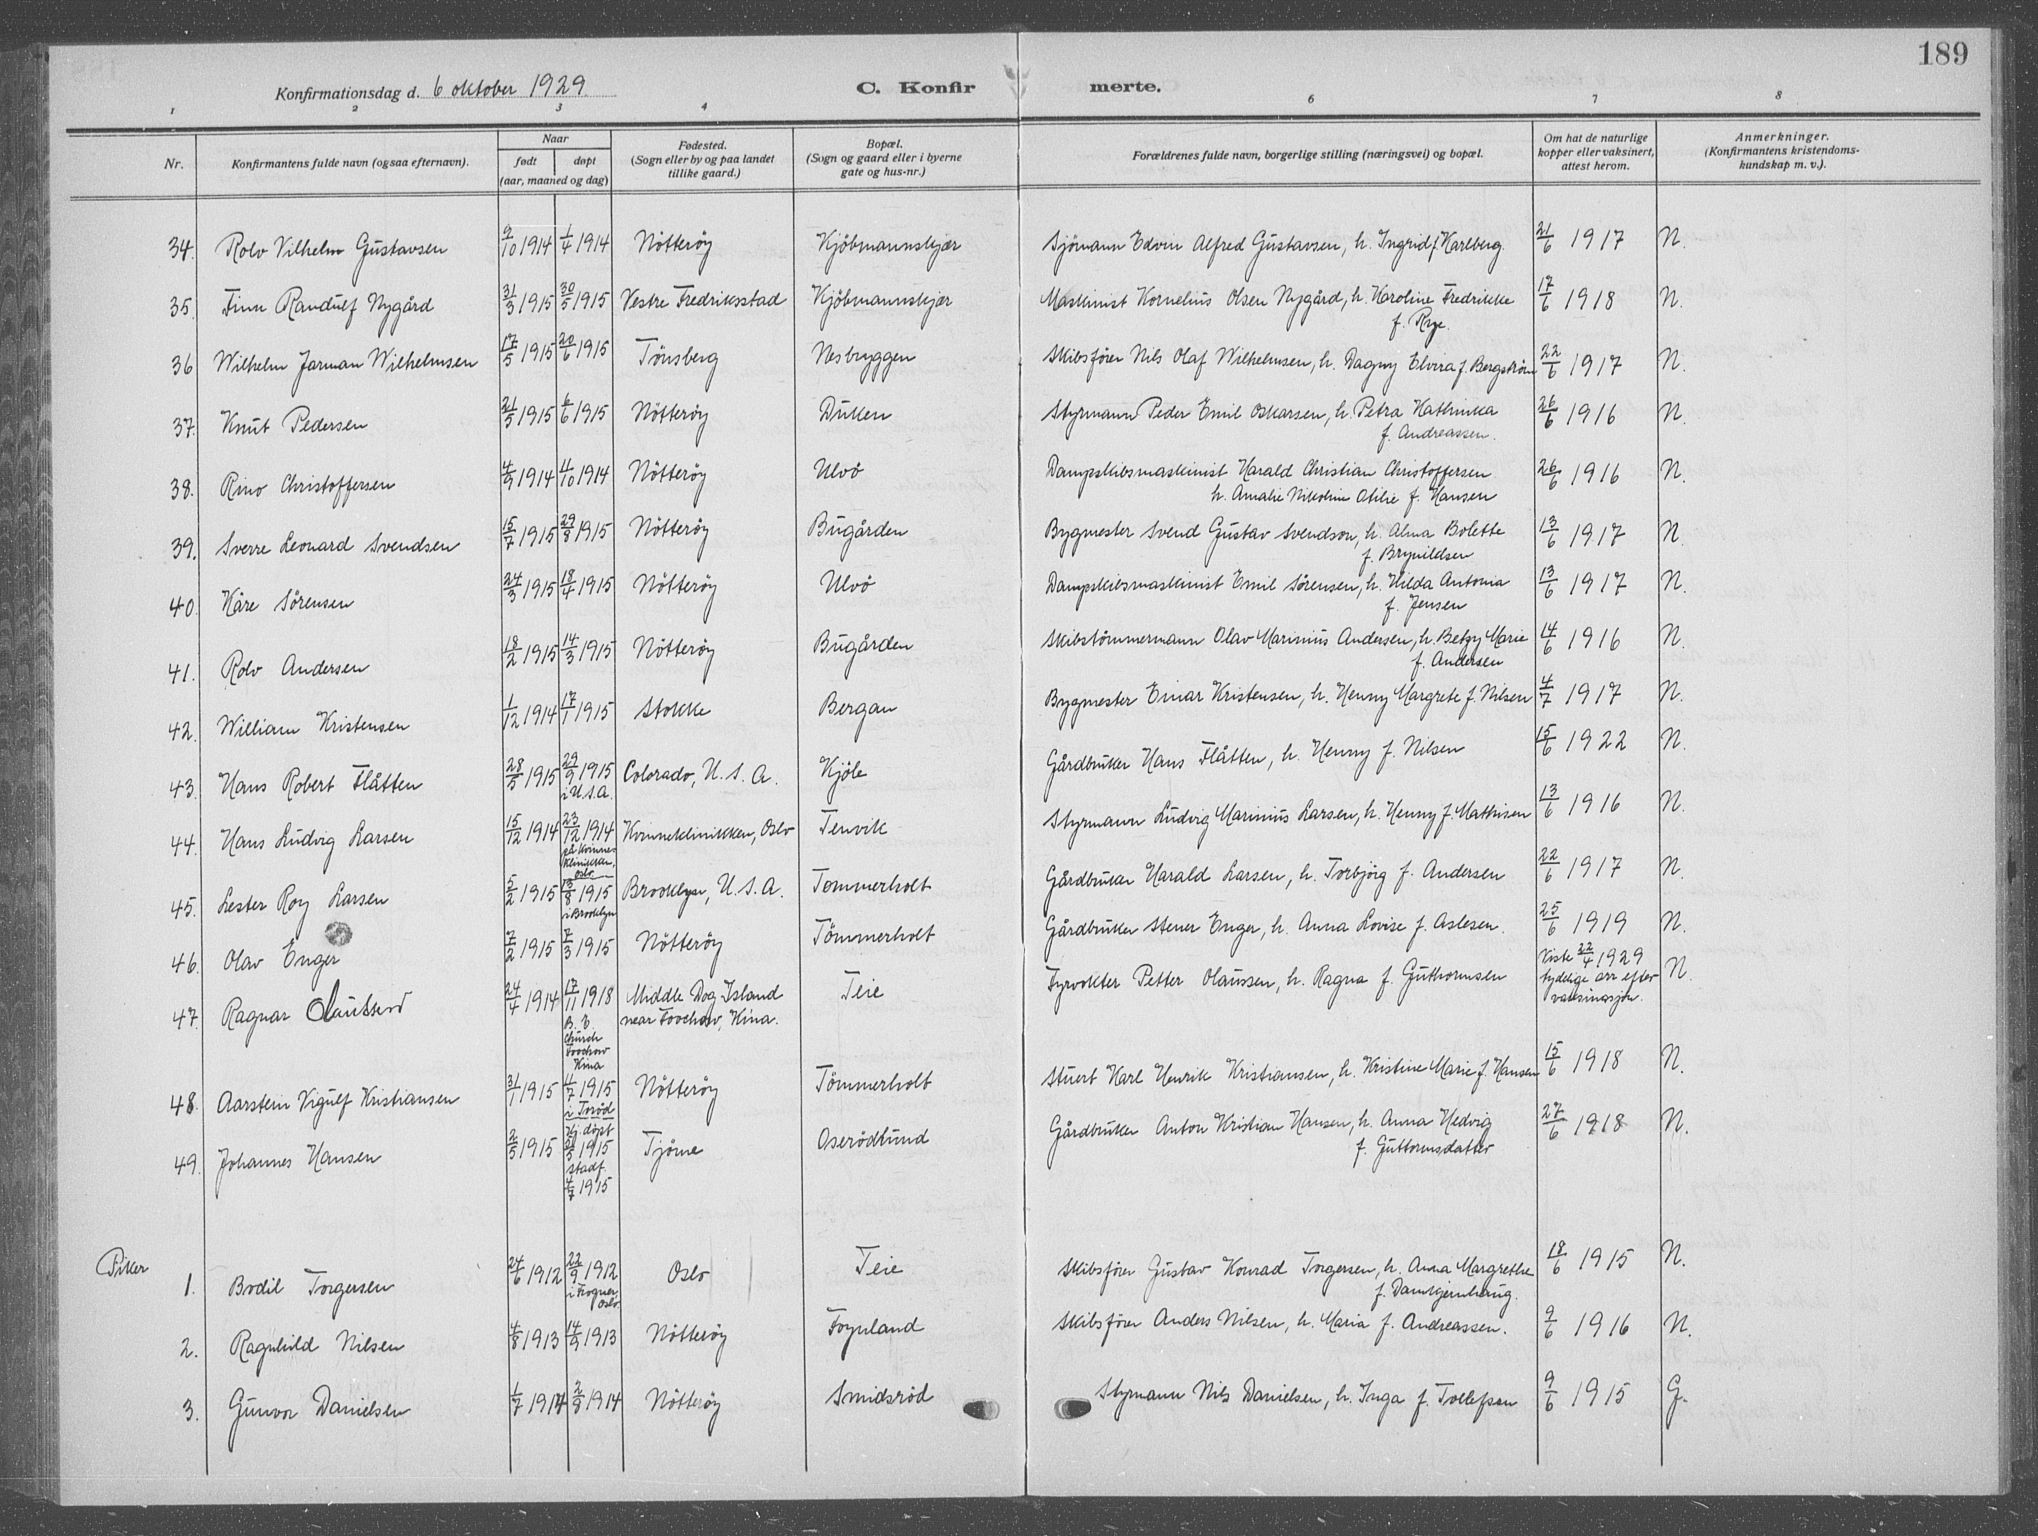 189
Konfirmationsdag d. 6 oktober 1929
C. Konfirmerte.
1 2 3 4 6 7 8
Nr. Konfirmantens fulde navn (ogsaa efternavn). Naar født døpt (aar, maaned og dag) Fødested. (Sogn eller by og paa landet tillike gaard.) Bopæl. (Sogn og gaard eller i byerne gate og hus-nr.) Forældrenes fulde navn, borgerlige stilling (næringsvei) og bopæl. Om hat de naturlige kopper eller vaksinert, attest herom. Anmerkninger. (Konfirmantens kristendoms-kundskap m. v.).
34. Rolv Vilhelm Gustavsen 9/10 1914 1/4 1914 Nötteröy Kjöbmannskjær Sjömann Edvin Alfred Gustavsen, h. Ingrid f. Karlberg. 21/6 1917 N.
35. Finn Randulf Nygård 31/3 1915 30/5 1915 Vestre Fredriksstad Kjöbmannskjær Maskinist Kornelius Olsen Nygård, h. Karoline Fredrikke 17/6 1918 N.
f. Rye.
36 Wilhelm Jarman Wilhelmsen 17/5 1915 20/6 1915 Tönsberg Nesbryggen Skibsförer Nils Olaf Wilhelmsen, h. Dagny Elvira f. Bergström 22/6 1917 N.
37. Knut Pedersen 21/5 1915 6/6 1915 Nötteröy Duken Styrmann Peder Emil Oskarsen, h. Petra Kathinka 26/6 1916 N.
f. Andreassen.
38. Rino Christoffersen 4/9 1914 4/10 1914 Nötteröy Ulvö Dampskibsmaskinist Harald Christian Christoffersen 26/6 1916 N.
h. Amalie Nikoline Otilie f. Hansen
39. Sverre Leonard Svendsen 15/7 1915 29/8 1915 Nötteröy Bugården Bygmester Svend Gustav Svendson, h. Alma Bolette 13/6 1917 N.
f. Brynildsen
40. Kåre Sörensen 24/3 1915 18/4 1915 Nötteröy Ulvö Dampskibsmaskinist Emil Sörensen, h. Hilda Antonia 13/6 1917 N.
f. Jensen
41. Rolv Andersen 18/2 1915 14/3 1915 Nötteröy Bugården Skibstömmermann Olav Marinius Andersen, h. Betzy Marie 14/6 1916 N.
f. Andersen
42. William Kristensen 1/12 1914 17/1 1915 Stokke Bergan Bygmester Einar Kristensen, h. Henny Margrete f. Nilsen 4/7 1917 N.
43. Hans Robert Flåtten 28/5 1915 29/9 1915 i U.S.A. Colorado, U. S. A. Kjöle Gårdbruker Hans Flåtten, h. Henny f. Nilsen 15/6 1922 N.
44. Hans Ludvig Larsen 15/12 1914 23/12 1914 på Kvinneklinikken, Oslo Kvinneklinikken, Oslo Tenvik Styrmann Ludvig Marinius Larsen, h. Henny f. Mathisen 13/6 1916 N.
45. Lester Roy Larsen 5/2 1915 13/8 1915 i Brooklyn Brooklyn, U. S. A. Tommerholt Gårdbruker Harald Larsen, h. Torbjörg f. Andersen 22/6 1917 N.
46. Olav Enger 7/2 1915 7/3 1915 Nötteröy Tömmerholt Gårdbruker Stener Enger, h. Anna Lovise f. Aslesen. 25/6 1919 N.
47. Ragnar 24/4 1914 17/11 1918 B. E. Church Foochow Kina Middle Dog Island near Foochow, Kina. Teie Fyrvokter Petter Olaussen, h. Ragna f. Guthormsen Viste 22/4 1929 tydelige arr efter vaksinasjon. N.
48. Aarstein Vigulf Kristiansen 31/1 1915 4/7 1915 i Torød Nötteröy Tömmerholt Stuert Karl Henrik Kristiansen, h. Kristine Marie f. Hansen 15/6 1918 N.
49. Johannes Hansen 2/5 1915 Hj. döpt 1915 stadf. 4/7 1915 Tjöme Oserödlund Gårdbruker Anton Kristian Hansen, h. Anna Hedvig 27/6 1918 N.
f. Guttormsdatter
Piker
1. Bodil Torgersen 24/6 1912 22/9 1912 i Frogner, Oslo Oslo Teie Skibsförer Gustav Konrad Torgersen, h. Anna Margrethe 18/6 1915 N.
2. Ragnhild Nilsen 4/8 1913 14/9 1913 Nötteröy Foynland Skibsförer Anders Nilsen, h. Maria f. Andreassen. 9/6 1916 N.
3. Gunvor Danielsen 1/7 1914 2/8 1914 Nötteröy Smidsröd Styrmann Nils Danielsen, h. Inga f. Tollefsen 9/6 1915 G.